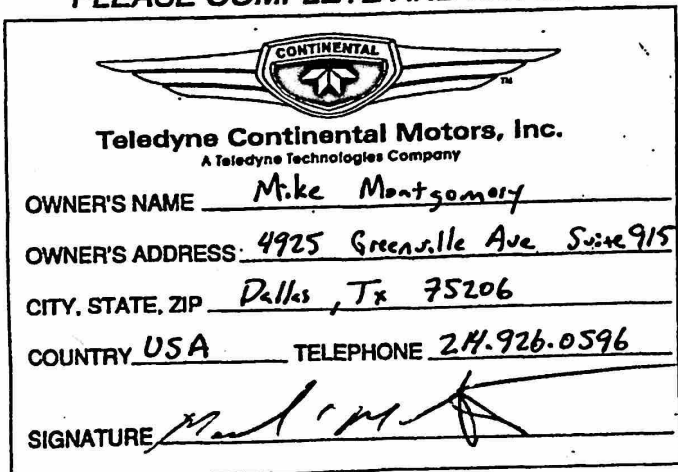 PLEASE COMPLETE AND
CONTINENTAL
TM
Teledyne Continental Motors, Inc.
A Teledyne Technologies Company
OWNER'S NAME Mike Montgomery
OWNER'S ADDRESS: 4925 Greenville Ave Suite 915
CITY, STATE, ZIP Dallas, Tx 75206
COUNTRY USA TELEPHONE 214.926.0596
SIGNATURE